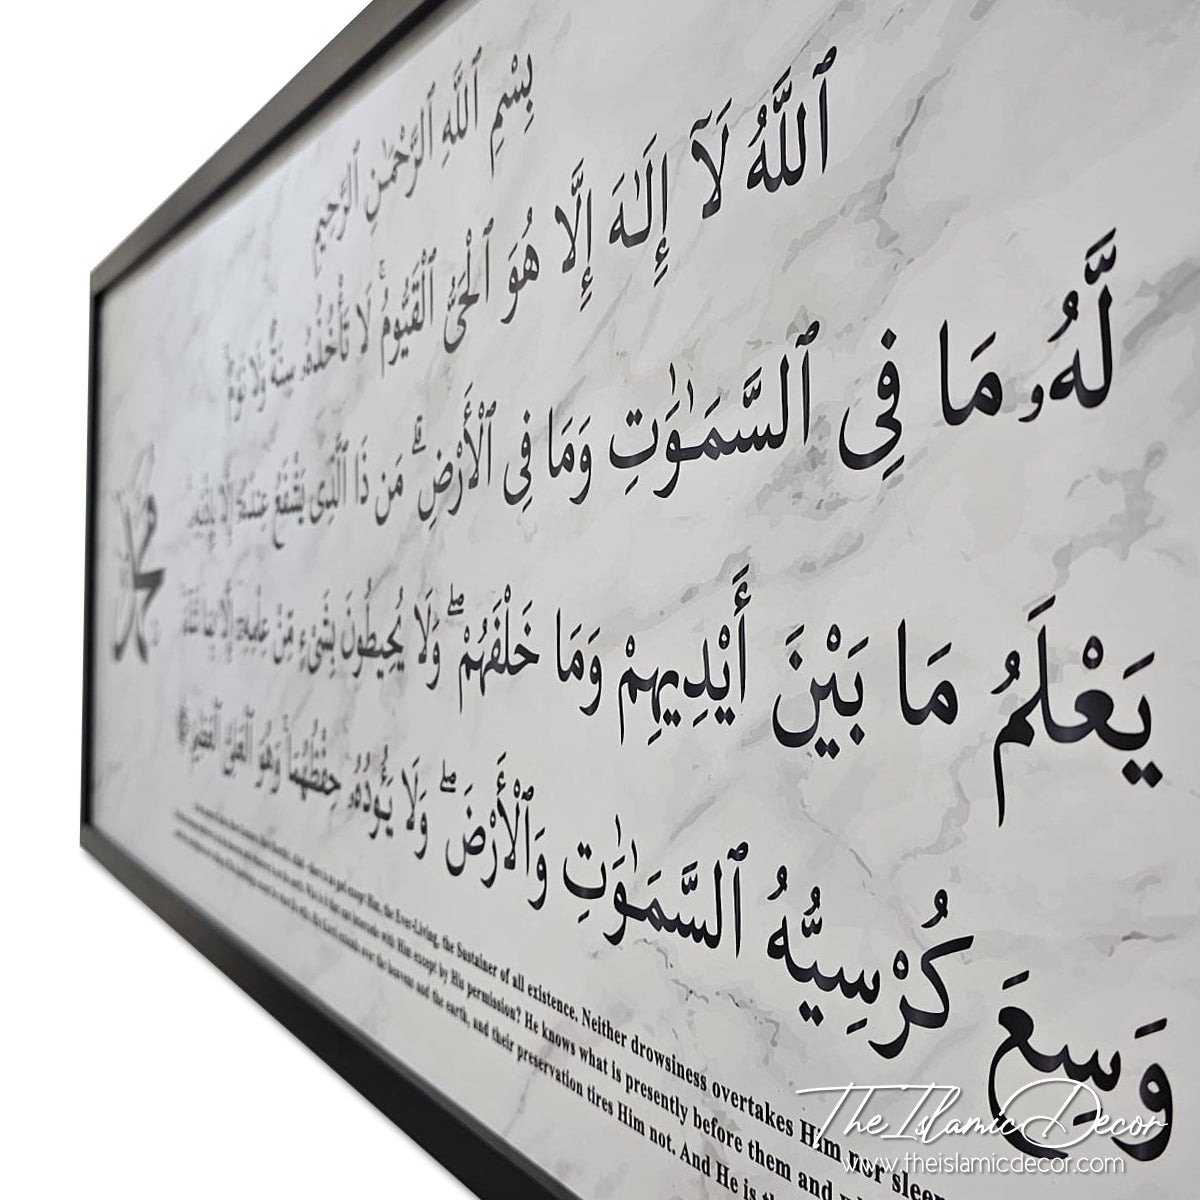 بِسْمِ ٱللَّهِ ٱلرَّحْمَٰنِ ٱلرَّحِيمِ
ٱللَّهُ لَآ إِلَٰهَ إِلَّا هُوَ ٱلْحَىُّ ٱلْقَيُّومُ ۚ لَا تَأْخُذُهُۥ سِنَةٌ وَلَا نَوْمٌ ۚ
لَّهُۥ مَا فِى ٱلسَّمَٰوَٰتِ وَمَا فِى ٱلْأَرْضِ ۗ مَن ذَا ٱلَّذِى يَشْفَعُ عِندَهُۥٓ إِلَّا بِإِذْنِهِۦ ۚ
يَعْلَمُ مَا بَيْنَ أَيْدِيهِمْ وَمَا خَلْفَهُمْ ۖ وَلَا يُحِيطُونَ بِشَىْءٍ مِّنْ عِلْمِهِۦٓ إِلَّا بِمَا شَآءَ ۚ
وَسِعَ كُرْسِيُّهُ ٱلسَّمَٰوَٰتِ وَٱلْأَرْضَ ۖ وَلَا يَـُٔودُهُۥ حِفْظُهُمَا ۚ وَهُوَ ٱلْعَلِىُّ ٱلْعَظِيمُ
محمد
there is no god except Him, the Ever-Living, the Sustainer of all existence. Neither drowsiness overtakes Him nor sleep
with Him except by His permission? He knows what is presently before them and
over the heavens and the earth, and their preservation tires Him not. And He is
The Islamic Decor
www.theislamicdecor.com